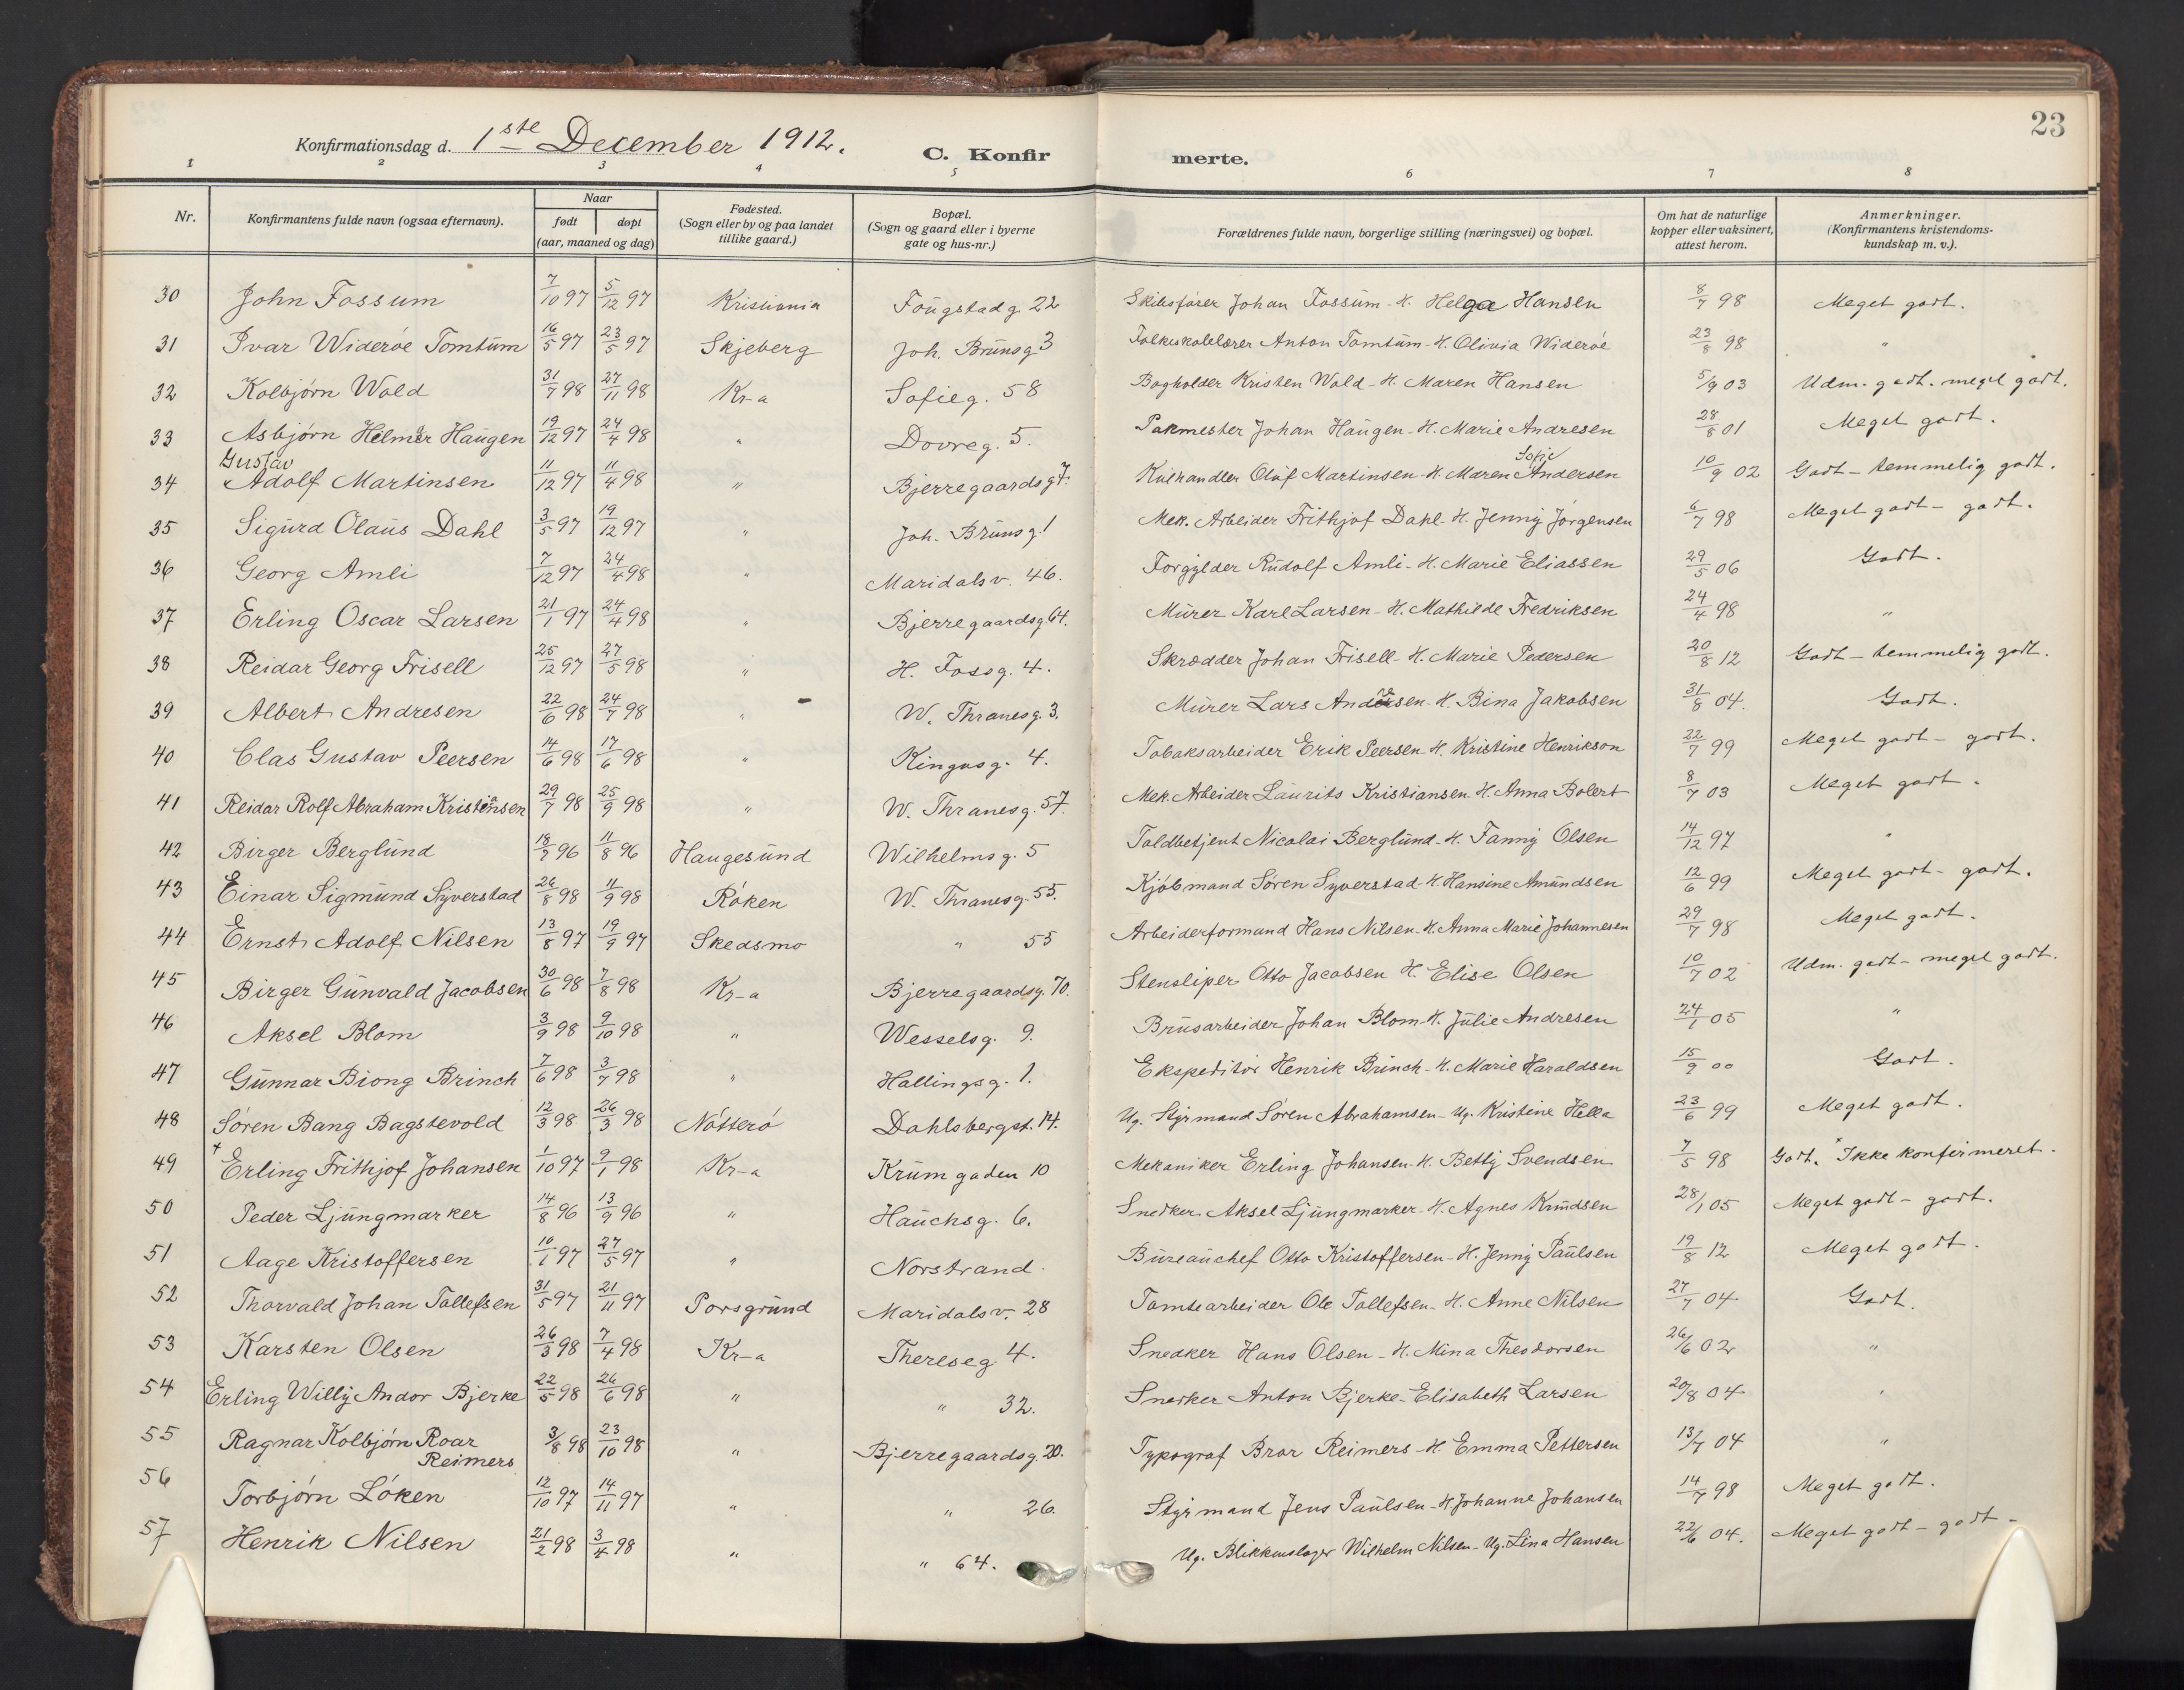 23
Konfirmationsdag d. 1ste December 1912.
C. Konfir merte.
1 2 3 4 5 6 7 8
Nr. Konfirmantens fulde navn (ogsaa efternavn). Naar født døpt (aar, maaned og dag) Fødested. (Sogn eller by og paa landet tillike gaard.) Bopæl. (Sogn og gaard eller i byerne gate og hus-nr.) Forældrenes fulde navn, borgerlige stilling (næringsvei) og bopæl. Om hat de naturlige kopper eller vaksinert, attest herom. Anmerkninger. (Konfirmantens kristendoms-kundskap m. v.).
30 John Fossum 7/10 97 5/12 97 Kristiania Fougstadg 22 Skibsfører Johan Fossum - H. Helga Hansen 8/7 98 Meget godt.
31 Ivar Widerøe Tomtum 16/5 97 23/5 97 Skjeberg Joh. Brunsg 3 Folkeskolelærer Anton Tomtum - H. Olivia Widerøe 23/8 98 "
32 Kolbjørn Wold 31/7 98 27/11 98 Kr-a Sofieg. 58 Bogholder Kristen Wold - H. Maren Hansen 5/9 03 Udm. godt. meget godt.
33 Asbjørn Helmer Haugen 19/12 97 24/4 98 " Dovreg. 5. Pakmester Johan Haugen - H. Marie Andresen 28/8 01 Meget godt.
34 Gustav Adolf Martinsen 11/12 97 11/4 98 " Bjerregaardsg 7. Kulhandler Oluf Martinsen - H. Maren Sofie Andersen 10/9 02 Godt - temmelig godt.
35 Sigurd Olaus Dahl 3/5 97 19/12 97 " Joh. Brunsg. 1 Mek. Arbeider Frithjof Dahl - H. Jenny Jørgensen 6/7 98 Meget godt - godt.
36 Georg Amli 7/12 97 24/4 98 " Maridalsv. 46. Forgylder Rudolf Amli - H. Marie Eliassen 29/5 06 Godt.
37 Erling Oscar Larsen 21/1 97 24/4 98 " Bjerregaardsg 64. Murer Karl Larsen - H. Mathilde Fredriksen 24/4 98 "
38 Reidar Georg Frisell 25/12 97 27/5 98 " H. Fossg. 4. Skrædder Johan Frisell - H. Marie Pedersen 20/8 12 Godt - temmelig godt.
39 Albert Andresen 22/6 98 24/7 98 " W. Thranesg. 3. Murer Lars Andresen - H. Bina Jakobsen 31/8 04. Godt.
40 Clas Gustav Peersen 14/6 98 17/6 98 " Ringvsg. 4. Tobaksarbeider Erik Peersen - H. Kristine Henrikson 22/7 99 Meget godt - godt.
41 Reidar Rolf Abraham Kristiansen 29/7 98 25/9 98 " W. Thranesg. 57. Mek. Arbeider Laurits Kristiansen - H. Anna Bolert 8/7 03 Meget godt.
42 Birger Berglund 18/7 96 11/8 96 Haugesund Wilhelmsg. 5 Toldbetjent Nicolai Berglund - H. Fanny Olsen 14/12 97 "
43 Einar Sigmund Syverstad 26/8 98 11/9 98 Røken W. Thranesg. 55. Kjøbmand Søren Syverstad - H. Hansine Amundsen 12/6 99 Meget godt - godt.
44 Ernst Adolf Nilsen 13/8 97 19/9 97 Skedsmo " 55 Arbeiderformand Hans Nilsen - H. Anna Marie Johannesen 29/7 98 Meget godt.
45 Birger Gunvald Jacobsen 30/6 98 7/8 98 Kr-a Bjerregaardsg. 70. Stensliper Otto Jacobsen H. Elise Olsen 10/7 02 Udm. godt - meget godt.
46 Aksel Blom 3/9 98 9/10 98 " Wesselsg. 9. Brusarbeider Johan Blom - H. Julie Andresen 24/1 05 "
47 Gunnar Biong Brinch 7/6 98 3/7 98 " Hallingsg. 1. Ekspeditør Henrik Brinch - H. Marie Haraldsen 15/9 00 Godt.
48 Søren Bang Bagstevold 12/3 98 26/3 98 Nøtterø Dahlsbergst. 14. Ug. Styrmand Søren Abrahamsen - Ug. Kristine Hella 23/6 99 Meget godt.
49 + Erling Frithjof Johansen 1/10 97 9/1 98 Kr-a Krumgaden 10 Mekaniker Erling Johansen - H. Betty Svendsen 7/5 98 Godt. + Ikke konfirmeret.
50 Peder Ljungmarker 14/8 96 13/9 96 " Hauchsg. 6. Snedker Aksel Ljungmarker - H. Agnes Knudsen 28/1 05 Meget godt - godt.
51 Aage Kristoffersen 10/1 97 27/5 97 " Norstrand. Bureauchef Otto Kristoffersen - H. Jenny Paulsen 19/8 12 Meget godt.
52 Thorvald Johan Tollefsen 31/5 97 21/11 97 Porsgrund Maridalsv. 28 Tomtearbeider Ole Tollefsen - H. Anne Nilsen 27/7 04 Godt.
53 Karsten Olsen 26/3 98 7/4 98 Kr-a Thereseg 4. Snedker Hans Olsen - H. Mina Theodorsen 26/6 02 "
54 Erling Willy Andor Bjerke 22/5 98 26/6 98 " " 32. Snedker Anton Bjerke - Elisabeth Larsen 20/8 04 "
55 Ragnar Kolbjørn Roar Reimers 3/8 98 23/10 98 " Bjerregaardsg. 20. Typograf Bror Reimers - H. Emma Pettersen 13/7 04 "
56 Torbjørn Løken 12/10 97 14/11 97 " " 26. Styrmand Jens Paulsen - H Johanne Johansen 14/7 98 Meget godt.
57 Henrik Nilsen 21/2 98 3/4 98 " " 64. Ug. Blikkenslager Wilhelm Nilsen - Ug. Lina Hansen 22/6 04. Meget godt - godt -